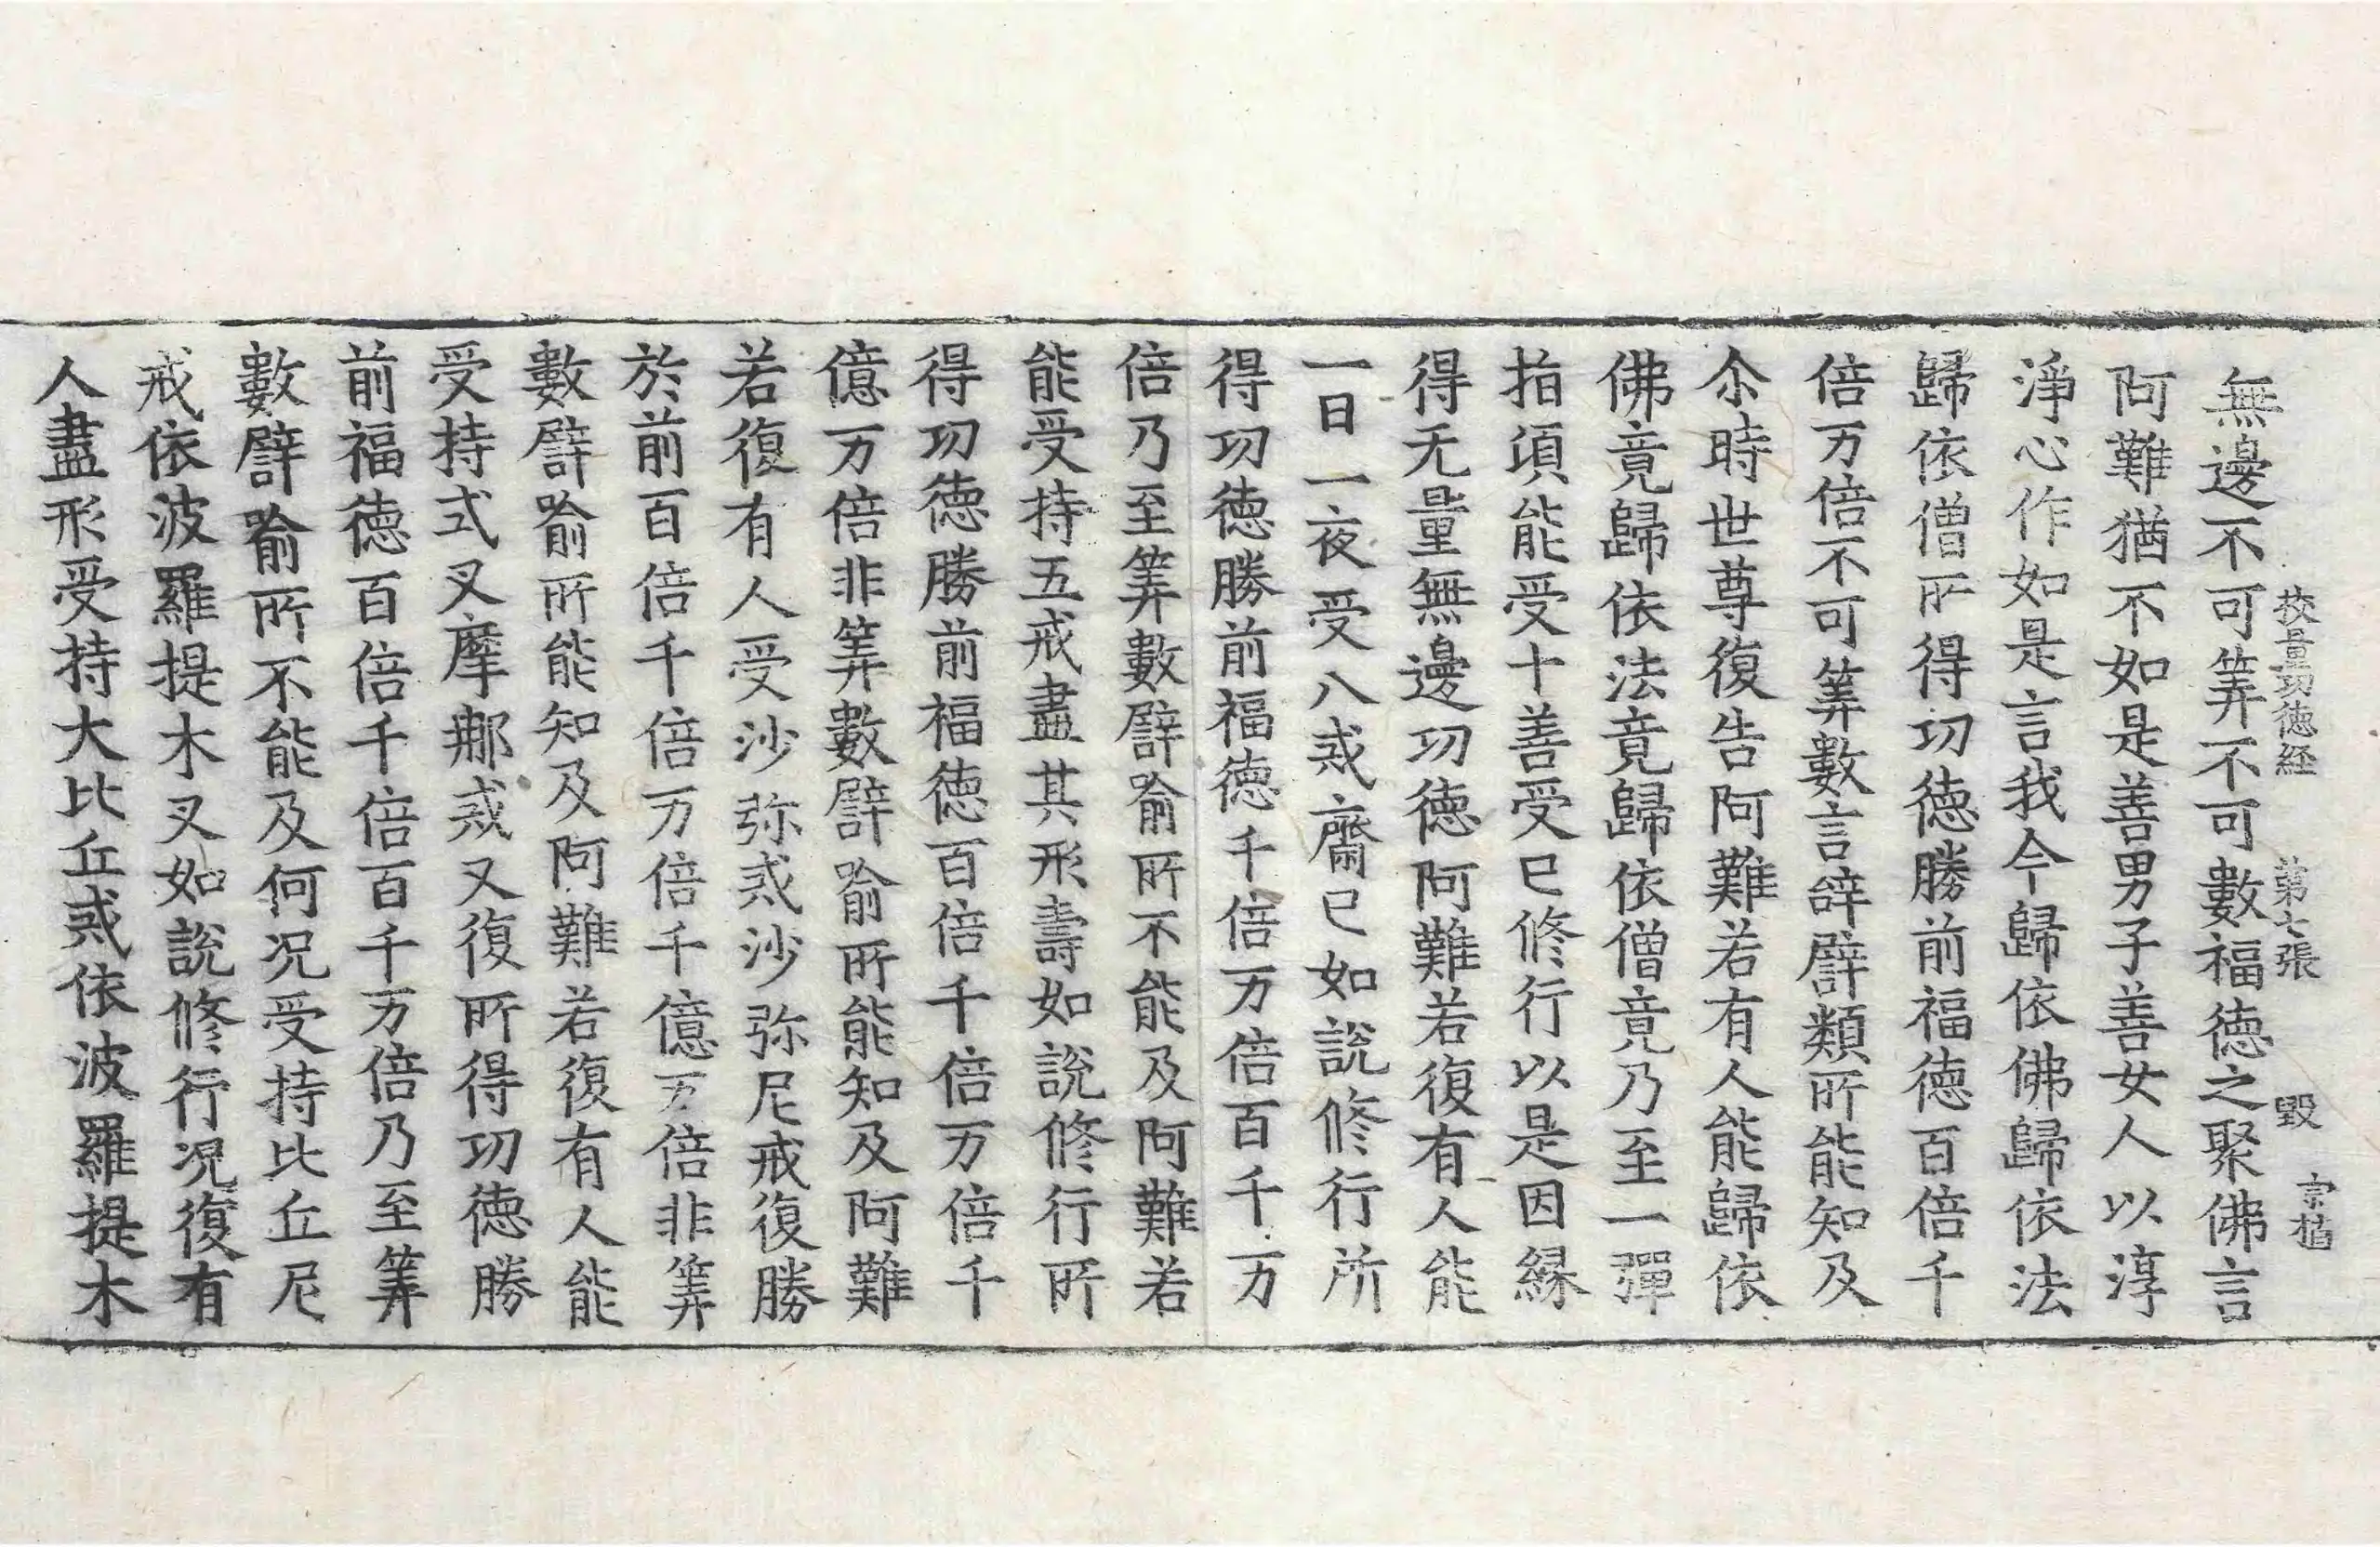 無邊不可筭不可數福德之聚佛言
阿難猶不如是善男子善女人以淳
淨心作如是言我今歸依佛歸依法
歸依僧所得功德勝前福德百倍千
倍万倍不可筭數言辝譬類所能知及
尒時世尊復告阿難若有人能歸依
佛竟歸依法竟歸依僧竟乃至一彈
指頃能受十善受已修行以是因緣
得无量無邊功德阿難若復有人能
一日一夜受八戒齋已如說修行所
得功德勝前福德千倍万倍百千万
倍乃至筭數譬喻所不能及阿難若
能受持五戒盡其形壽如說修行所
得功德勝前福德百倍千倍万倍千
億万倍非筭數譬喻所能知及阿難
若復有人受沙弥戒沙弥尼戒復勝
於前百倍千倍万倍千億万倍非筭
數譬喻所能知及阿難若復有人能
受持式叉摩那戒又復所得功德勝
前福德百倍千倍百千万倍乃至筭
數譬喻所不能及何况受持比丘尼
戒依波羅提木叉如說修行况復有
人盡形受持大比丘戒依波羅提木
挍量功德経 第七張 毀 宗植